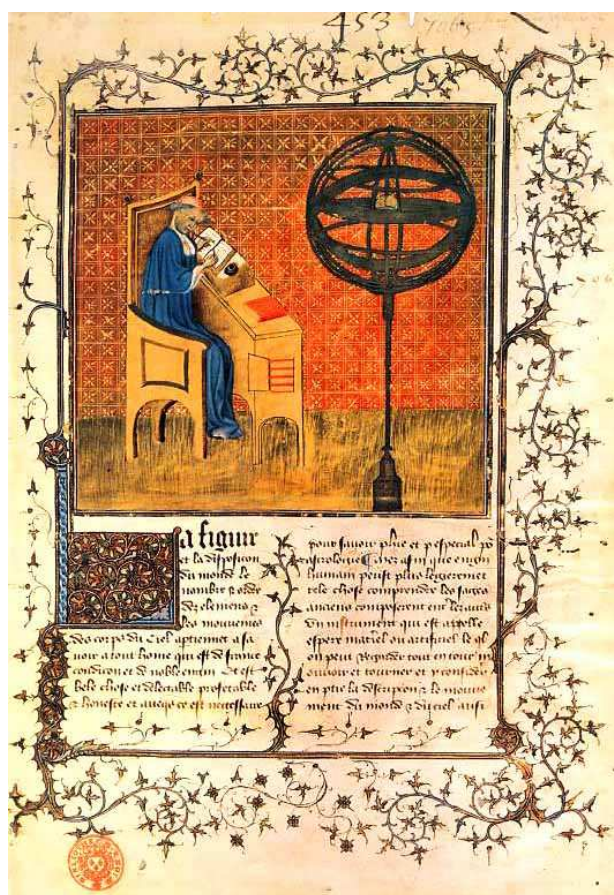 453
7065
La figure
et la disposicion
du monde le
nombre et ordre
des elemens et
les mouvemens
des corps du ciel aptiennēt a sa
voir a tout home qui est de france
condicion et de noble engin Et est
bele chose et delectable profetable
et honeste et avecq̄s ce est necessaire
pour savoir phīe et p especial po
astrologie
humain peust plus legieremēt
tele chose comprendre les sages
anciens composerent ent les autˢ
Un instrument qui est appelle
espere materiel ou artificiel le q̄l
on peut regarder tout entour m
ouvoir et tourner et y considerer
en ptie la descripcion et le mouve
ment du monde et du ciel aussi